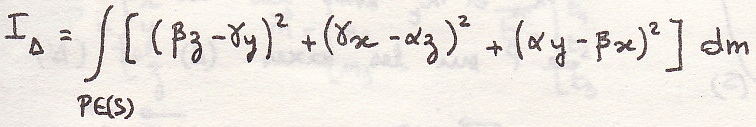 I_Δ = ∫ [ (βz - γy)² + (γx - αz)² + (αy - βx)² ] dm
P∈(S)